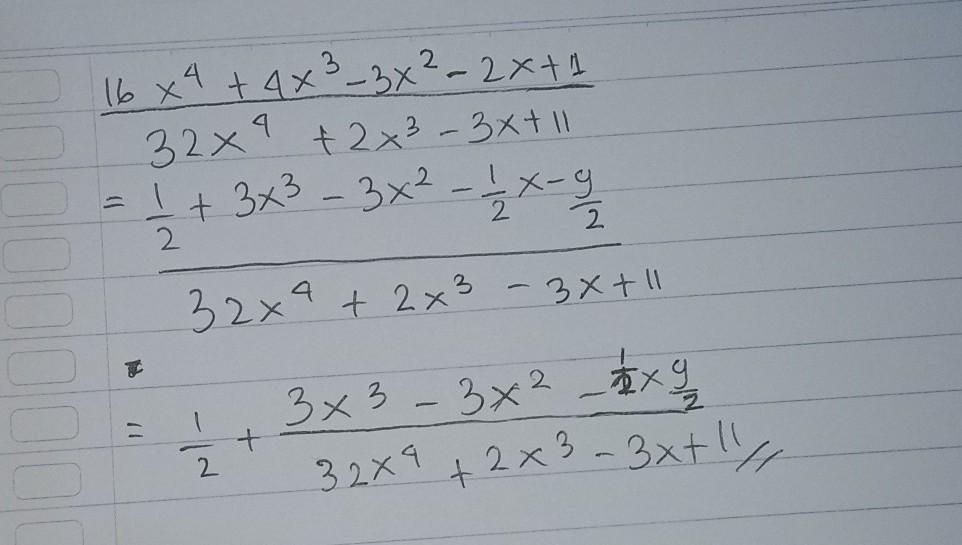 16x⁴ + 4x³ - 3x² - 2x + 1
32x⁴ + 2x³ - 3x + 11
= 1/2 + 3x³ - 3x² - 1/2 x - 9/2
32x⁴ + 2x³ - 3x + 11
= 1/2 + 3x³ - 3x² - 1/2 x 9/2
32x⁴ + 2x³ - 3x + 11 //